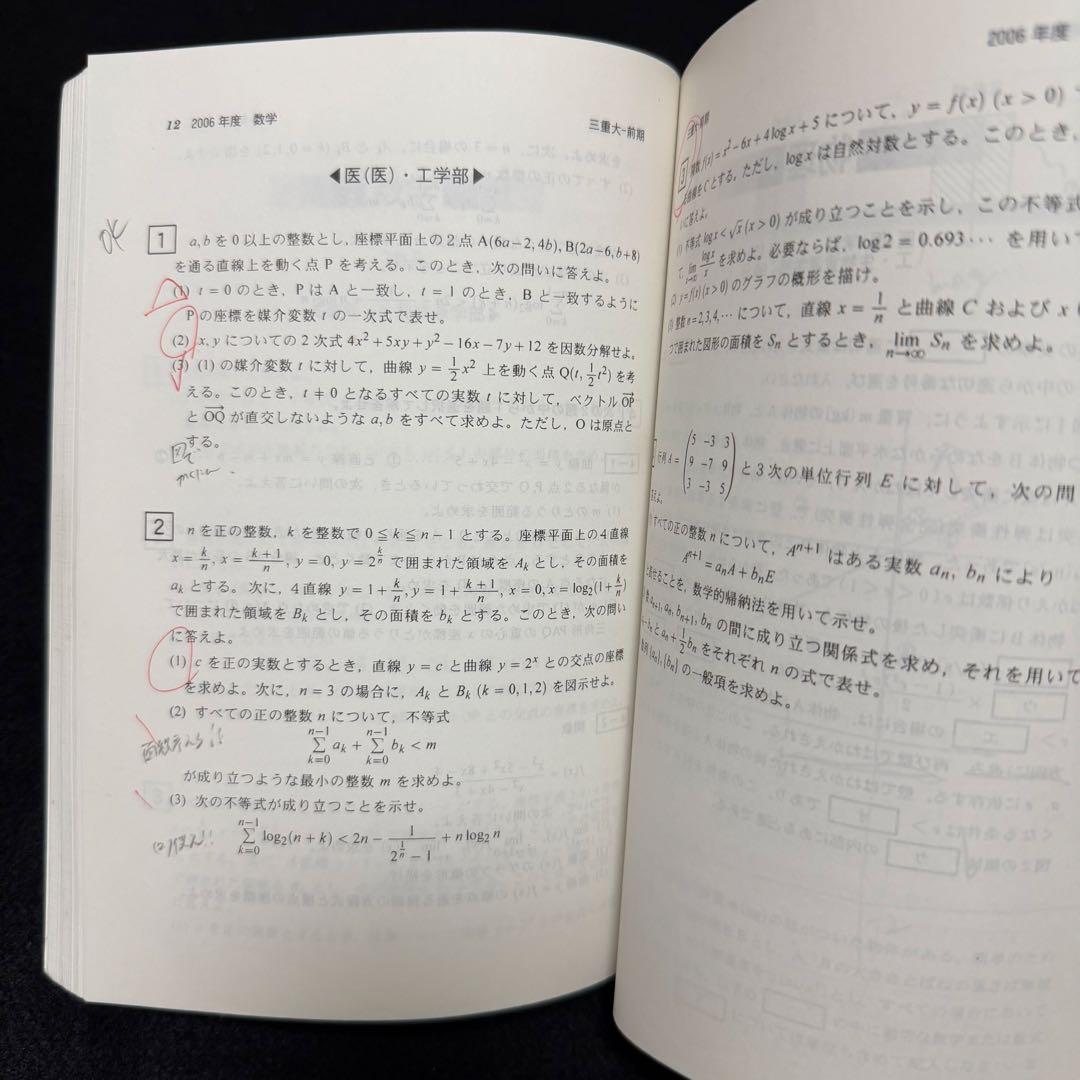 12 2006年度 数学
三重大-前期
◀医(医)・工学部▶
OK
1 a, b を0以上の整数とし,座標平面上の2点 A(6a−2, 4b), B(2a−6, b+8)
を通る直線上を動く点 P を考える。このとき,次の問いに答えよ。
(1) t=0 のとき,P は A と一致し,t=1 のとき,B と一致するように
P の座標を媒介変数 t の一次式で表せ。
(2) x, y についての2次式 4x²+5xy+y²−16x−7y+12 を因数分解せよ。
(3) (1)の媒介変数 t に対して,曲線 y=1/2x² 上を動く点 Q(t, 1/2t²) を考
える。このとき,t≠0 となるすべての実数 t に対して,ベクトル OP→
と OQ→ が直交しないような a, b をすべて求めよ。ただし,O は原点と
する。
2 n を正の整数,k を整数で 0≦k≦n−1 とする。座標平面上の4直線
x=k/n, x=(k+1)/n, y=0, y=2^(k/n) で囲まれた領域を Aₖ とし,その面積を
aₖ とする。次に,4直線 y=1+k/n, y=1+(k+1)/n, x=0, x=log₂(1+k/n)
で囲まれた領域を Bₖ とし,その面積を bₖ とする。このとき,次の問い
に答えよ。
(1) c を正の実数とするとき,直線 y=c と曲線 y=2ˣ との交点の座標
を求めよ。次に,n=3 の場合に,Aₖ と Bₖ (k=0, 1, 2) を図示せよ。
(2) すべての正の整数 n について,不等式
Σ[k=0, n−1] aₖ + Σ[k=0, n−1] bₖ < m
が成り立つような最小の整数 m を求めよ。
(3) 次の不等式が成り立つことを示せ。
Σ[k=0, n−1] log₂(n+k) < 2n − 1/(2^(1/n)−1) + n log₂ n
2006年度
3 関数 f(x)=x²−6x+4logx+5 について,y=f(x) (x>0)
曲線を C とする。ただし,logx は自然対数とする。このとき,
いに答えよ。
(1) 不等式 logx<√x (x>0) が成り立つことを示し,この不等式
て,lim logx/x を求めよ。必要ならば,log2=0.693… を用い
(2) y=f(x) (x>0) のグラフの概形を描け。
(3) 整数 n=2, 3, 4, … について,直線 x=1/n と曲線 C および x
つで囲まれた図形の面積を Sₙ とするとき,lim[n→∞] Sₙ を求めよ。
行列 A=(5 −3 3 / 9 −7 9 / 3 −3 5) と3次の単位行列 E に対して,次の問
すべての正の整数 n について,Aⁿ⁺¹ はある実数 aₙ, bₙ により
Aⁿ⁺¹=aₙA+bₙE
と表せることを,数学的帰納法を用いて示せ。
aₙ₊₁, aₙ, bₙ₊₁, bₙ の間に成り立つ関係式を求め,それを用いて
−bₙ と aₙ+1/2bₙ をそれぞれ n の式で表せ。
列{aₙ}, {bₙ} の一般項を求めよ。